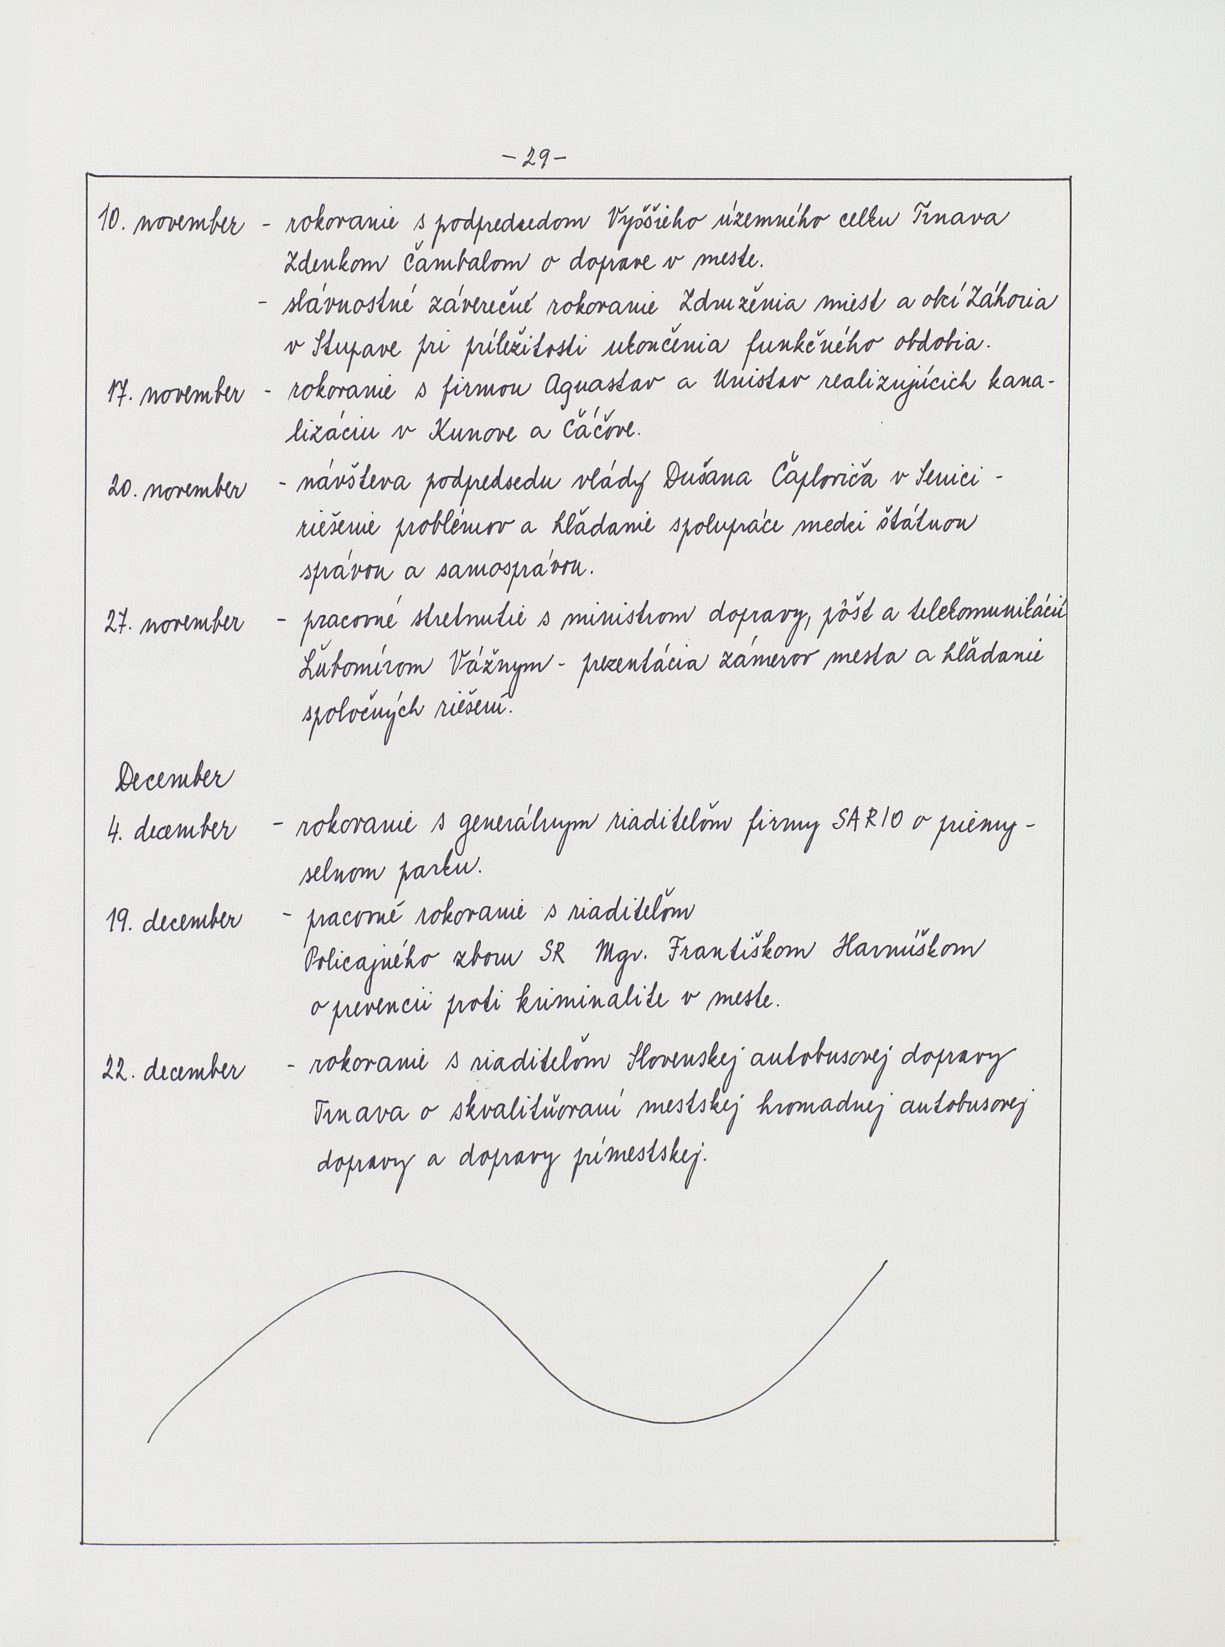 - 29 -
10. november - rokovanie s podpredsedom Vyššieho územného celku Trnava
Zdenkom Čambalom o doprave v meste.
- slávnostné záverečné rokovanie Združenia miest a obcí Záhoria
v Stupave pri príležitosti ukončenia funkčného obdobia.
17. november - rokovanie s firmou Aquastav a Unistav realizujúcich kana-
lizáciu v Kunove a Čáčove.
20. november - návšteva podpredsedu vlády Dušana Čaploviča v Senici -
riešenie problémov a hľadanie spolupráce medzi štátnou
správou a samosprávou.
27. november - pracovné stretnutie s ministrom dopravy, pôšt a telekomunikácií
Ľubomírom Vážnym - prezentácia zámerov mesta a hľadanie
spoločných riešení.
December
4. december - rokovanie s generálnym riaditeľom firmy SARIO o priemy-
selnom parku.
19. december - pracovné rokovanie s riaditeľom
Policajného zboru SR Mgr. Františkom Harnúškom
o prevencii proti kriminalite v meste.
22. december - rokovanie s riaditeľom Slovenskej autobusovej dopravy
Trnava o skvalitňovaní mestskej hromadnej autobusovej
dopravy a dopravy prímestskej.